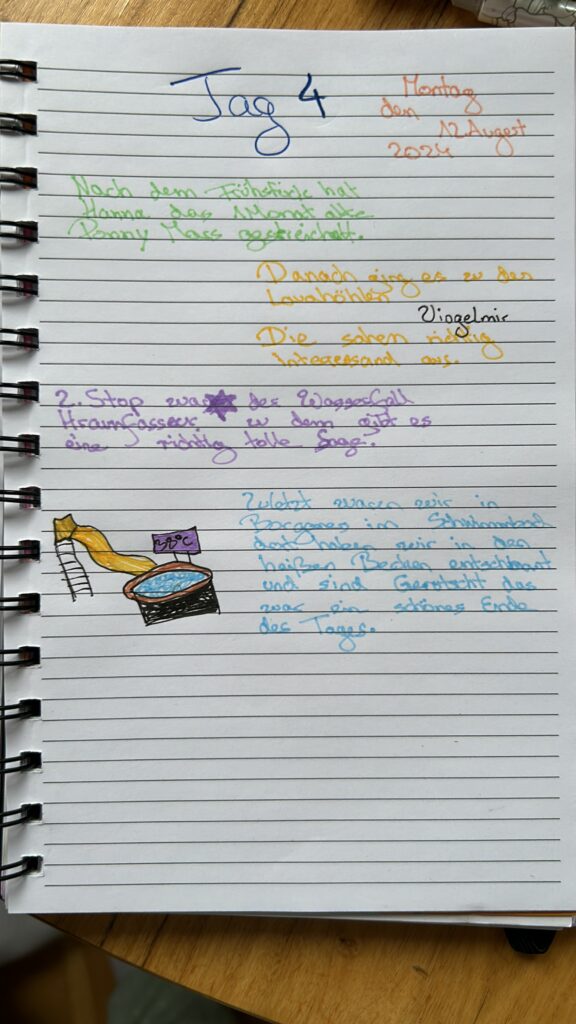 Tag 4
Montag
den
12 Augest
2024
Nach dem Frühstück hat
Hanna das 1 Monat alte
Ponny Mars gestreichelt.
Danach ging es zu den
Lavahöhlen
Vingelmir
Die sahen richtig
interessand aus.
2. Stop war der Wasserfall
Hraunfasseur. zu dem gibt es
eine richtig tolle Sage!
Zuletzt waren wir in
Borganes im Schwimmbad
dort haben wir in den
heißen Becken entschbant
und sind Gerutscht das
war ein schönes Ende
des Tages.
38°C